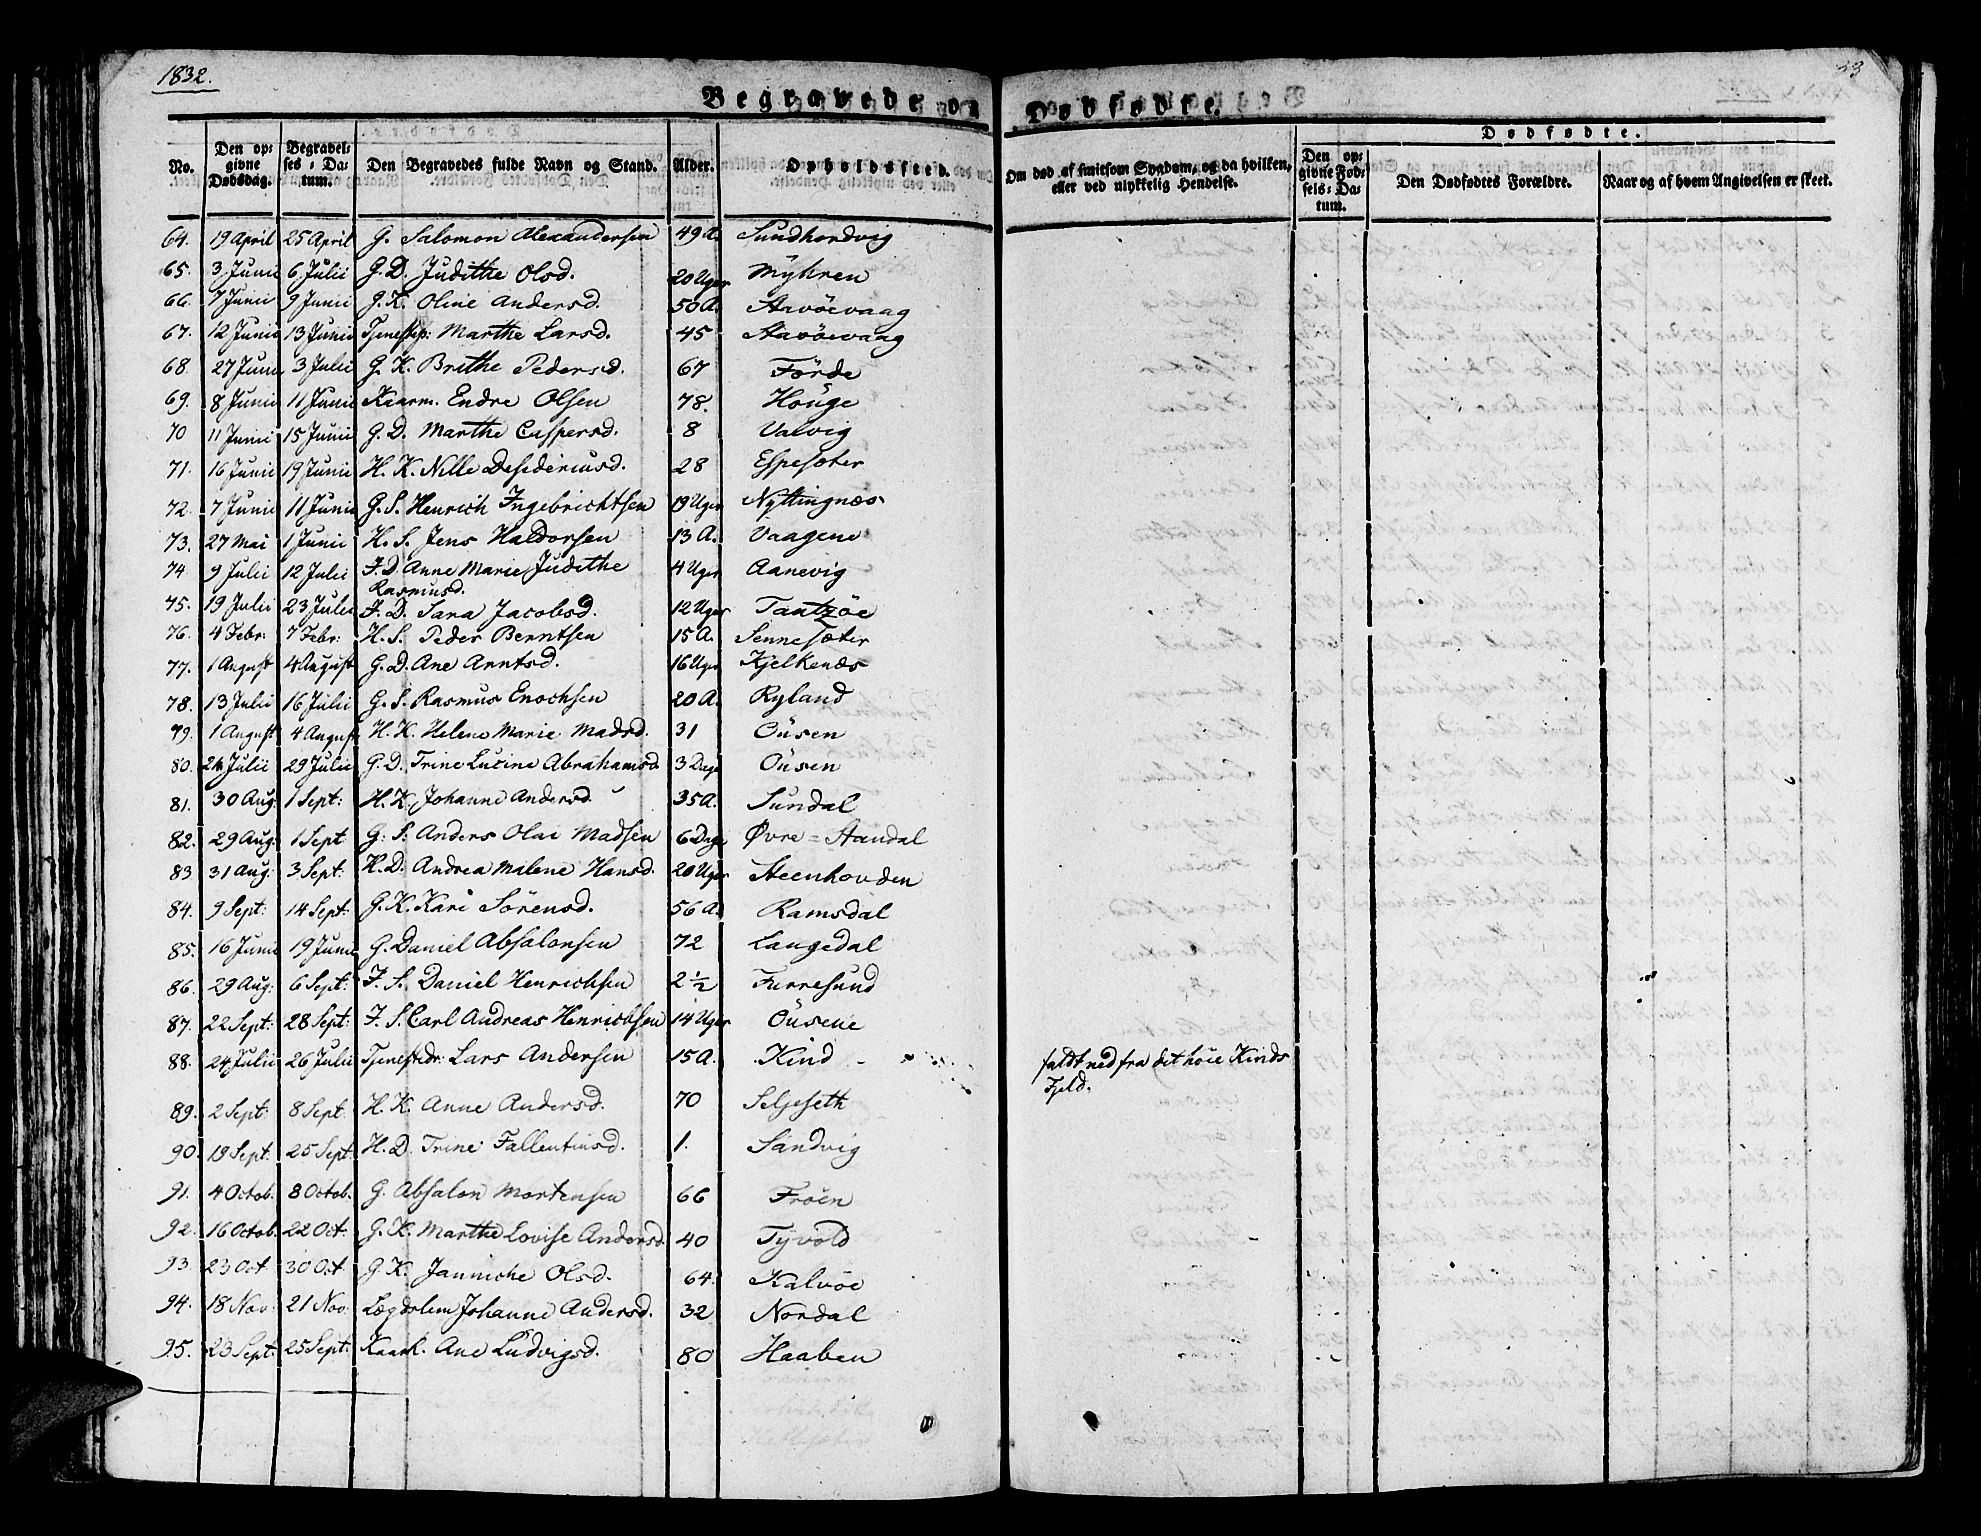 1832.
33
Begravede og Dødfødte.
No. Den opgivne Dødsdag. Begravelses-Datum. Den Begravedes fulde Navn og Stand. Alder. Opholdssted. Om død af smitsom Sygdom, og da hvilken, eller ved ulykkelig Hendelse. Den opgivne Fødsels-Datum. Dødfødte. Den Dødfødtes Forældre. Naar og af hvem Angivelsen er skeet.
64. 19 April 25 April G. Salomon Alexandersen 49 A. Sundhordvig
65. 3 Junii 6 Julii G. D. Judithe Olsd. 20 Uger Myhren
66. 7 Junii 9 Junii G. K. Oline Andersd. 50 A. Aavöevaag
67. 12 Junii 13 Junii Tjenestep: Marthe Larsd. 45 Aavöevaag
68. 27 Junii 3 Julii G. K. Brithe Pedersd. 67 Förde
69. 8 Junii 11 Junii Kaarm. Endre Olsen 78. Houge
70 11 Junii 15 Junii G. D. Marthe Caspersd. 8 Valvig
71. 16 Junii 19 Junii H. K. Nille Desideriusd. 28 Espesæter
72. 7 Junii 11 Junii G. S. Henrich Ingebrichtsen 19 Uger Nyttingnæs
73. 27 Mai 1 Junii H. S. Jens Haldorsen 13 A. Vaagene
74 9 Julii 12 Julii F. D. Anne Marie Judithe 4 Uger Aanevig
Rasmusd.
75. 19 Julii 23 Julii F. D. Sara Jacobsd. 12 Uger Tantzöe
76. 4 Febr: 7 Febr: H. S. Peder Berntsen 15 A. Sennesæter
77. 1 August 4 August G. D. Ane Arntsd. 16 Uger Kjelkenæs
78. 13 Julii 16 Julii G. S. Rasmus Enochsen 20 A. Ryland
79. 1 August 4 August H. K. Helene Marie Madsd. 31 Ousen
80. 24 Julii 29 Julii G. D. Trine Lucine Abrahamsd 3 Dage Ousen
81. 30 Aug: 1 Sept: H. K. Johanne Andersd. 35 A. Sundal
82. 29 Aug: 1 Sept G. S. Anders Olai Madsen 6 Dage Øvre = Aandal
83 31 Aug: 3 Sept: H. D. Andrea Malene Hansd. 20 Uger Steenhovden
84. 9 Sept: 14 Sept: G. K. Kari Sörensd. 56 A. Ramsdal
85. 16 Junii 19 Junii G. Daniel Absalonsen 72 Langedal
86. 29 Aug: 6 Sept: F. S. Daniel Henrichsen 2 1/2 Furresund
87. 22 Sept: 28 Sept: F. S. Carl Andreas Henrichsen 14 Uger Ousene
88. 24 Julii 26 Julii Tjenestedr: Lars Andersen 15 A. Kind - faldt ned fra det höie Kinds
Fjeld.
89. 2 Sept: 8 Sept: H. K. Anne Andersd. 70 Seljeseth
90. 19 Sept: 25 Sept: H. D. Trine Fallentinsd. 1. Sandvig
91. 4 Octob. 8 Octob. G. Absalon Mortensen 66 Fröen
92. 16 Octob. 22 Oct: G. K. Marthe Lovise Andersd. 40 Tyvold
93. 23 Oct 30 Oct G. K. Janniche Olsd. 64. Kalvöe
94. 18 Nov: 21 Nov: Lægdslem Johanne Andersd. 32 Nordal
95. 23 Sept: 25 Sept: Kaark. Ane Ludvigsd. 80 Haaben